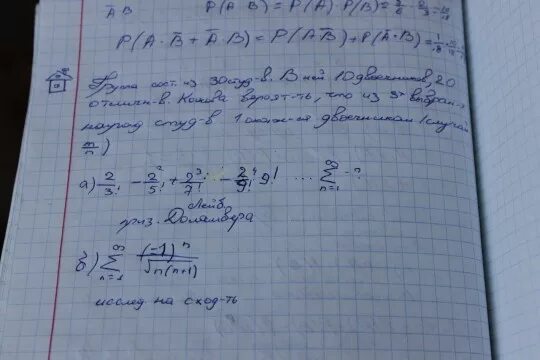 A̅ B P(A B) = P(A) · P(B) =
P(A · B̅ + A̅ · B) = P(A B̅) + P(A̅ · B) =
Группа сост. из 30 студ-в. В ней 10 двоечников, 20
отличн-в. Какова вероят-ть, что из 3х выбран-х
наугад студ-в 1 окаж-ся двоечником (случай
m/n)
а) 2/3! - 2²/5! + 2³/7! - 2⁴/9! 9! ... ∑ n=1 ∞ - ?
Лейб.
приз. Даламбера
б) ∑ n=1 ∞ (-1)ⁿ/√n(n+1)
исслед на сход-ть